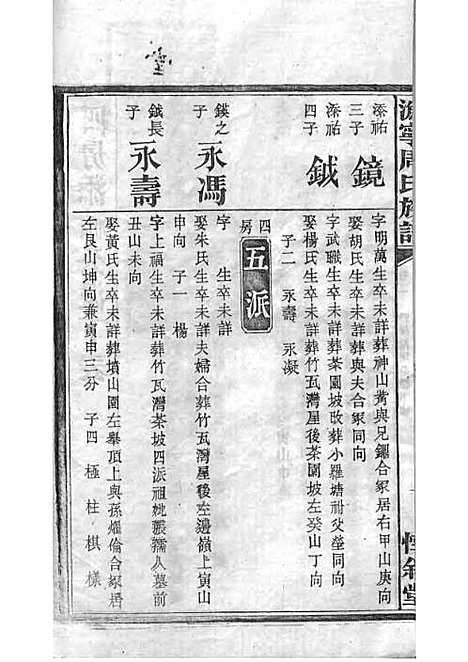 寧周氏族譜
惇敘堂
添祐三子
鏡
字明萬生卒未詳葬神山觜與兄鑼合冢居右甲山庚向
娶胡氏生卒未詳葬與夫合冢同向
添祐四子
鉞
字武職生卒未詳葬茶園坡改葬小羅塘祔父塋同向
娶楊氏生卒未詳葬竹瓦灣屋後茶園坡左癸山丁向
子二 永壽 永凝
四房
五派
鏌之子
永馮
字 生卒未詳
娶朱氏生卒未詳夫婦合葬竹瓦灣屋後左邊嶺上寅山
申向 子一 楊
鉞長子
永壽
字上福生卒未詳葬竹瓦灣茶坡四派祖妣嚴孺人墓前
丑山未向
娶黃氏生卒未詳葬墳山園左舉頂上與孫燿倫合冢居
左艮山坤向兼寅申三分 子四 極柱棋樣